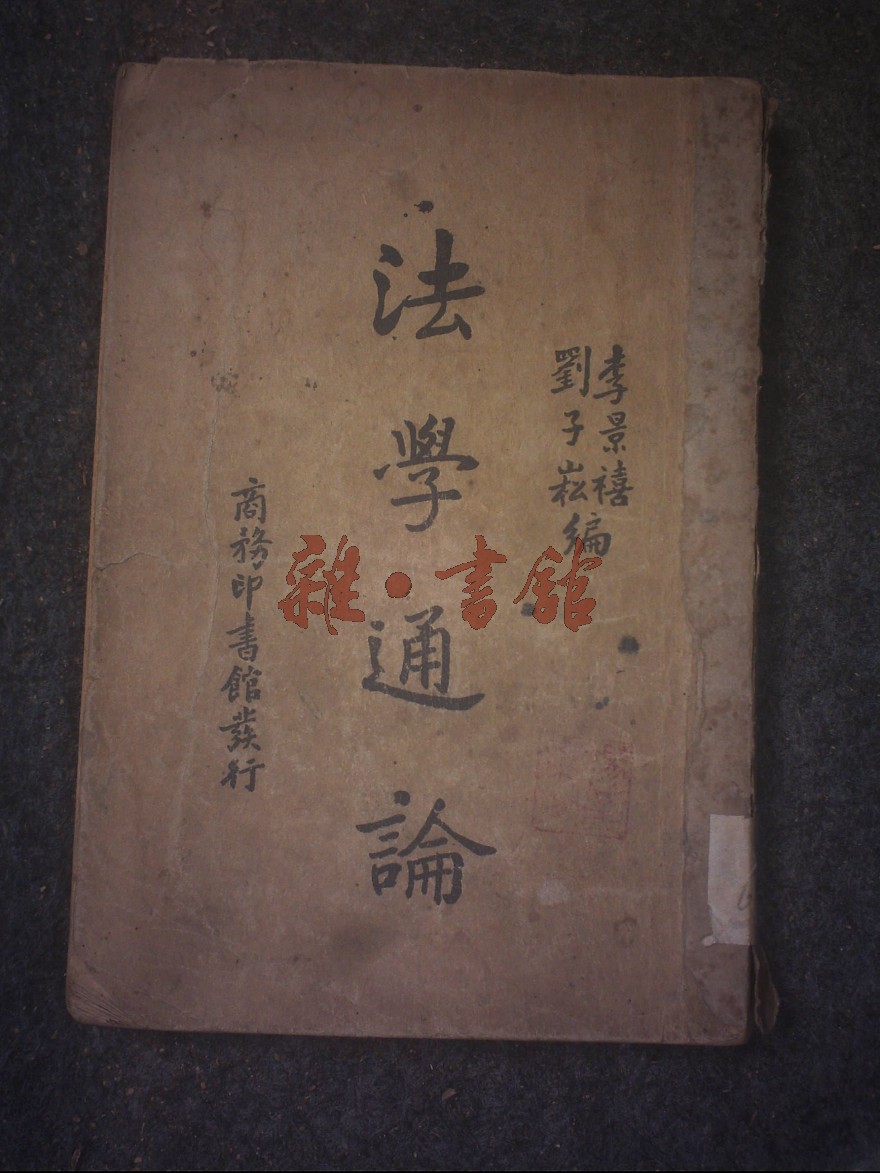 李景禧
劉子崧編
法學通論
商務印書館發行
雜·書館